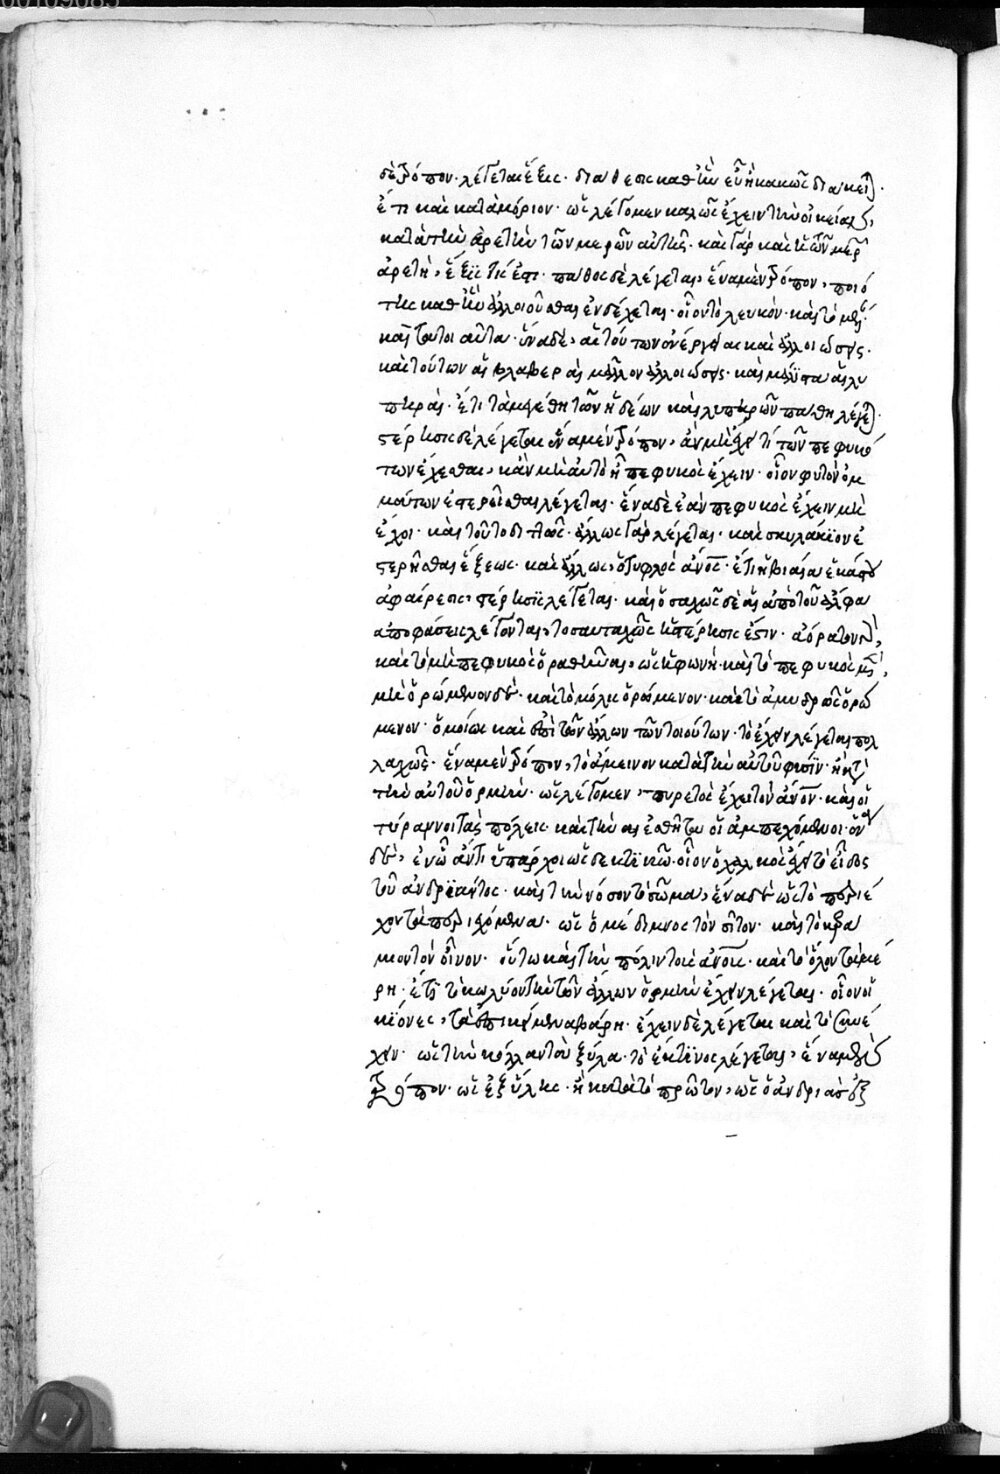 δὲ τρόπον λέγεται ἕξις· διάθεσις καθ' ἣν εὖ ἢ κακῶς διάκειται·
ἔτι καὶ κατὰ μόριον· ὡς λέγομεν καλῶς ἔχειν τὴν οἰκείαν,
κατὰ τὴν ἀρετὴν τῶν μερῶν αὐτῆς· καὶ γὰρ καὶ ἡ τῶν μερῶν
ἀρετή, ἕξις τίς ἐστι· πάθος δὲ λέγεται, ἕνα μὲν τρόπον, ποιό
της καθ' ἣν ἀλλοιοῦσθαι ἐνδέχεται· οἷον τὸ λευκὸν· καὶ τὸ μέλαν·
καὶ τὰ τοιαῦτα· ἕνα δὲ, αἱ τούτων ἐνέργειαι καὶ ἀλλοιώσεις·
καὶ τούτων αἱ βλαβεραὶ μᾶλλον ἀλλοιώσεις· καὶ μάλιστα αἱ λυ
πηραὶ· ἔτι τὰ μεγέθη τῶν ἡδέων καὶ λυπηρῶν πάθη λέγεται·
στέρησις δὲ λέγεται ἕνα μὲν τρόπον, ἂν μὴ ἔχῃ τι τῶν πεφυκό
των ἔχεσθαι, κἂν μὴ αὐτὸ ᾖ πεφυκὸς ἔχειν· οἷον φυτὸν ὀμ
μάτων ἐστερῆσθαι λέγεται· ἕνα δὲ ἐὰν πεφυκὸς ἔχειν μὴ
ἔχοι· καὶ τοῦτο διττῶς· ἄλλως γὰρ λέγεται· καὶ σκυλάκιον ἐ
στερῆσθαι ἕξεως· καὶ ἄλλως, ὁ τυφλὸς ἄνος· ἔτι ἡ βιαία ἑκάστου
ἀφαίρεσις, στέρησις λέγεται· καὶ ὁσαχῶς δὲ αἱ ἀπὸ τοῦ ἄλφα
ἀποφάσεις λέγονται, τοσαυταχῶς ἡ στέρησις ἐστιν· ἀόρατον γὰρ,
καὶ τὸ μὴ πεφυκὸς ὁραθῆναι, ὡς ἡ φωνή· καὶ τὸ πεφυκὸς μὲν,
μὴ ὁρώμενον δέ· καὶ τὸ μόλις ὁρώμενον· καὶ τὸ ἀμυδρῶς ὁρώ
μενον· ὁμοίως καὶ ἐπὶ τῶν ἄλλων τῶν τοιούτων· τὸ ἔχειν λέγεται πολ
λαχῶς· ἕνα μὲν τρόπον, τὸ ἄμεινον κατὰ τὴν αὐτοῦ φύσιν· ἢ κατὰ
τὴν αὐτοῦ ὁρμήν· ὡς λέγομεν, πυρετὸς ἔχει τὸν ἄνον· καὶ οἱ
τύραννοι τὰς πόλεις· καὶ τὴν αἰσθῆτα οἱ ἀμπεχόμενοι· ἕνα
δὲ, ἐν ᾧ ἄν τι ὑπάρχοι ὡς δεκτικῷ· οἷον ὁ χαλκὸς ἔχει τὸ εἶδος
τοῦ ἀνδριάντος· καὶ τὴν νόσον τὸ σῶμα, ἕνα δὲ ὡς τὸ περιέ
χον τὰ περιεχόμενα· ὡς ὁ μέδιμνος τὸν σῖτον· καὶ τὸ κερά
μιον τὸν οἶνον· οὕτω καὶ τὴν πόλιν τοῖς ἄνοις· καὶ τὸ ὅλον τὰ μέ
ρη· ἔτι τὸ κωλύον τὴν τῶν ἄλλων ὁρμὴν ἔχειν λέγεται· οἷον οἱ
κίονες, τὰ ἐπικείμενα βάρη· ἔχειν δὲ λέγεται καὶ τὸ συνέ
χον· ὡς τὴν κόλλαν τὰ ξύλα· τὸ ἔκ τινος λέγεται, ἕνα μὲν
τρόπον· ὡς ἐξ ὕλης· ἢ κατὰ τὸ πρῶτον, ὡς ὁ ἀνδριὰς ἐξ